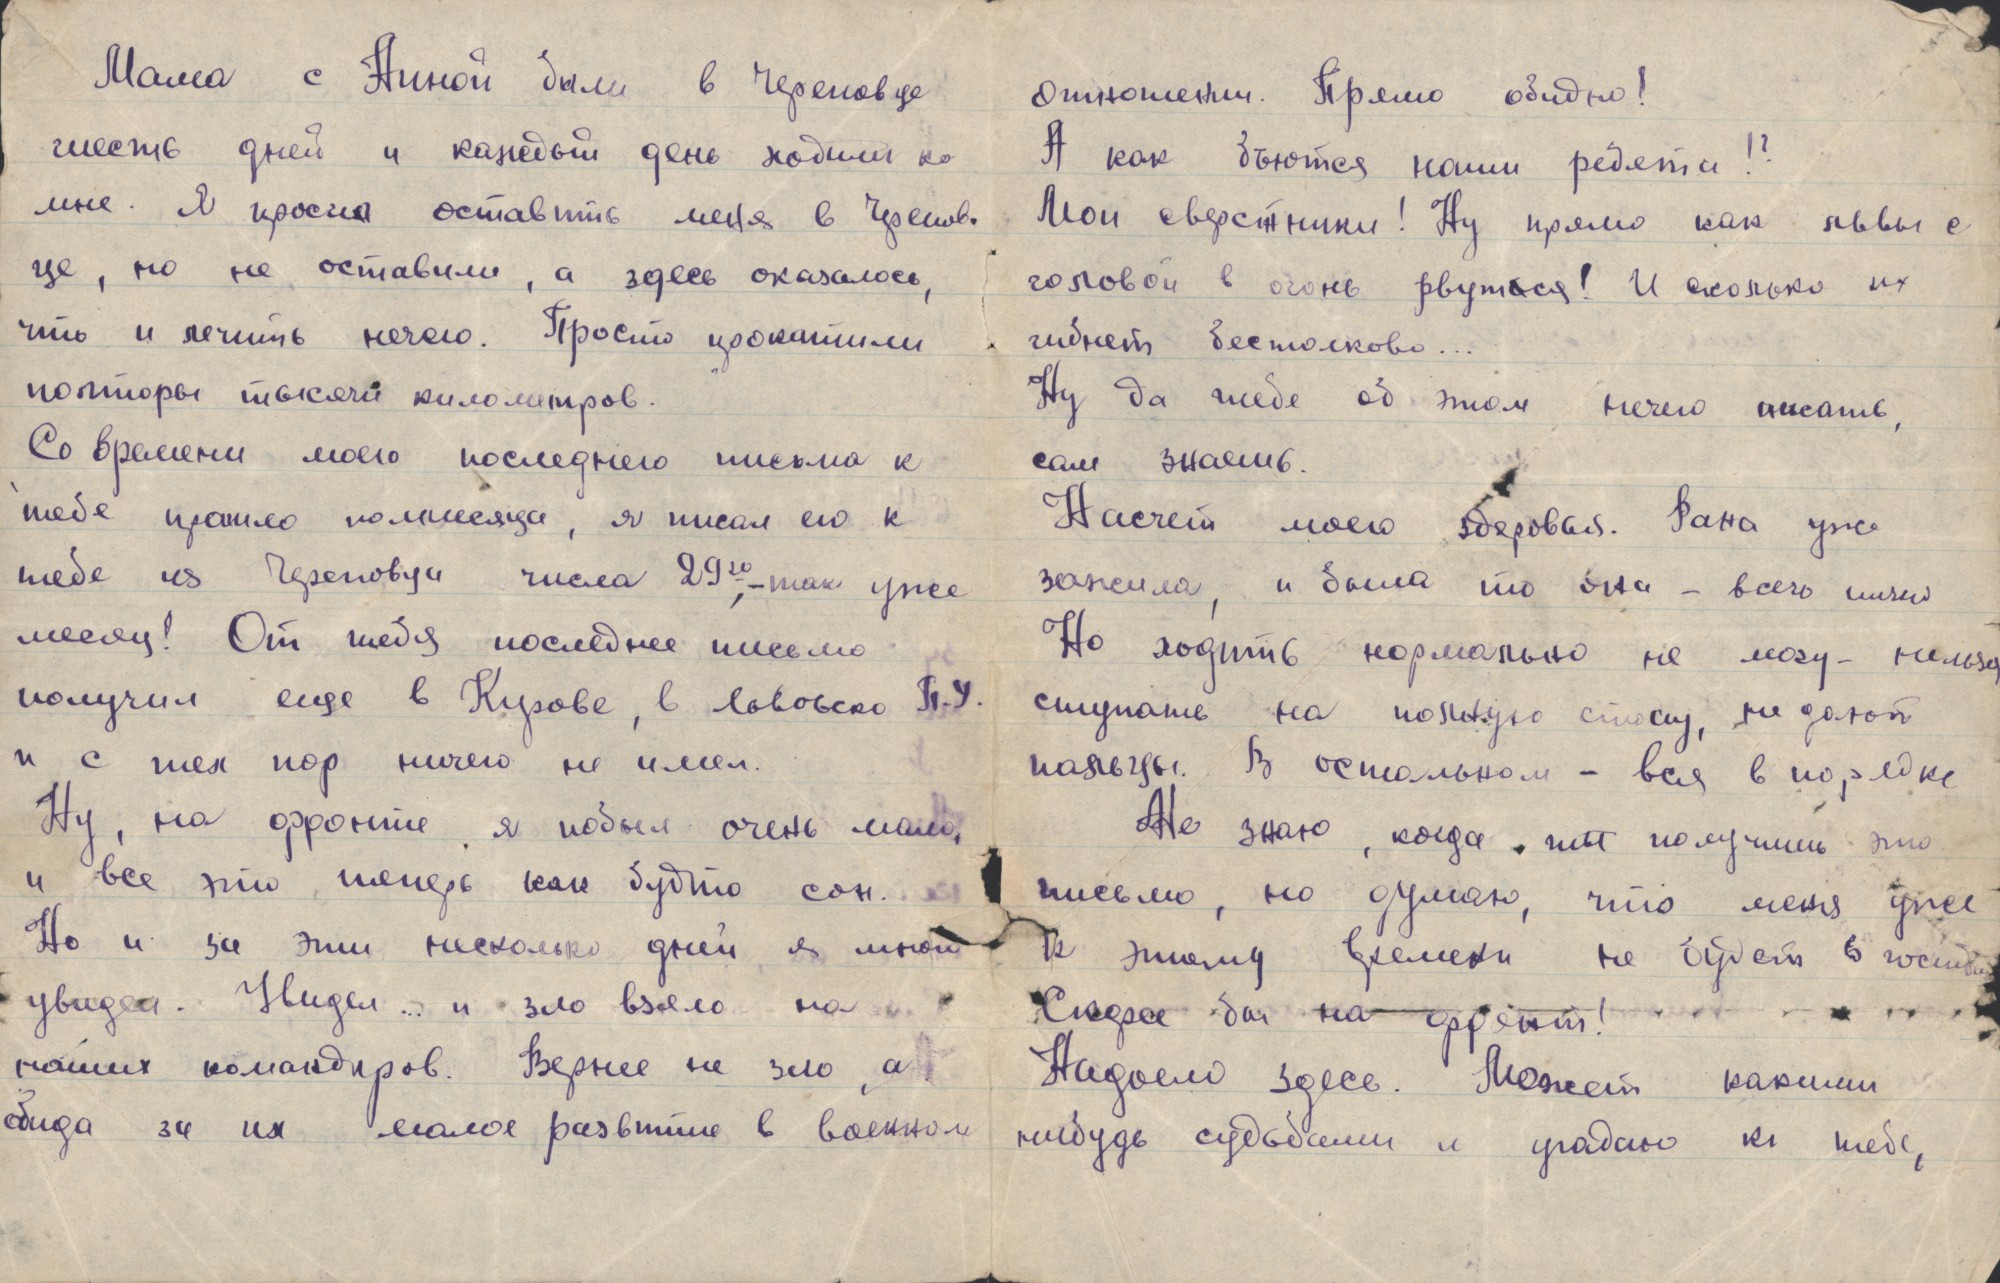 Мама с Анной были в Череповце
шесть дней и каждый день ходили ко
мне. Я просил оставить меня в Черепов-
це, но не оставили, а здесь оказалось,
что и лечить нечего. Просто прокатили
полторы тысячи километров.
Со времени моего последнего письма к
тебе прошло полмесяца, я писал его к
тебе из Череповца числа 29го,-так уже
месяц! От тебя последнее письмо
получил еще в Кирове, в Львовско П.У.
и с тех пор ничего не имел.
Ну, на фронте я побыл очень мало,
и все это теперь как будто сон.
Но и за эти несколько дней я много
увидел. Увидел... и зло взяло на
наших командиров. Вернее не зло, а
обида за их малое развитие в военном
отношении. Прямо обидно!
А как бъются наши ребята!?
Мои сверстники! Ну прямо как львы с
головой в огонь рвутся! И сколько их
гибнет бестолково...
Ну да тебе об этом нечего писать,
сам знаешь.
Насчет моего здоровья. Рана уже
зажила, и была то она - всего ничего
Но ходить нормально не могу - нельзя
ступать на полную стопу, не дают
пальцы. В остальном - вся в порядке
Не знаю, когда ты получишь это
письмо, но думаю, что меня уже
к этому времени не будет в госпит
Скорее бы на фронт!
Надоело здесь. Может какими
нибудь судьбами и угадаю к тебе,